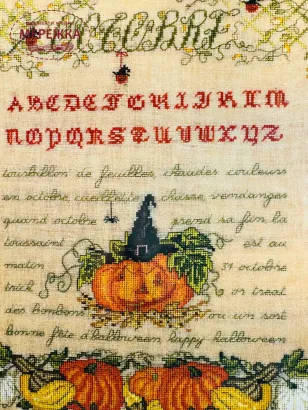 МЕРЕЖКА
OCTOBRE
ABCDEFGHIJKLM
NOPQRSTUVWXYZ
tourbillon de feuilles, chaudes couleurs
en octobre cueillette, chasse, vendanges
quand octobre prend sa fin la
toussaint est au
matin 31 octobre
trick or treat
des bonbons ou un sort
bonne fête d'halloween happy halloween